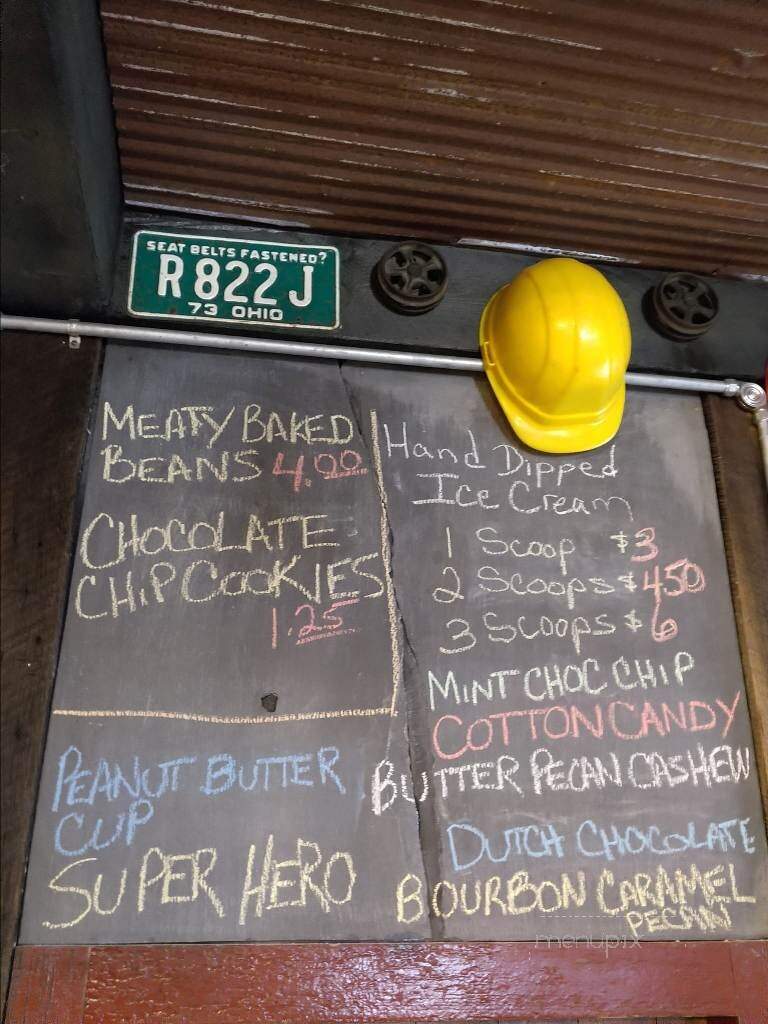 SEAT BELTS FASTENED?
R 822 J
73 OHIO
MEATY BAKED
BEANS 4.00
CHOCOLATE
CHIP COOKIES
1.25
Hand Dipped
Ice Cream
1 Scoop $3
2 Scoops $450
3 Scoops $6
MINT CHOC CHIP
COTTON CANDY
BUTTER PECAN CASHEW
DUTCH CHOCOLATE
BOURBON CARAMEL
PECAN
PEANUT BUTTER
CUP
SUPER HERO
menupix